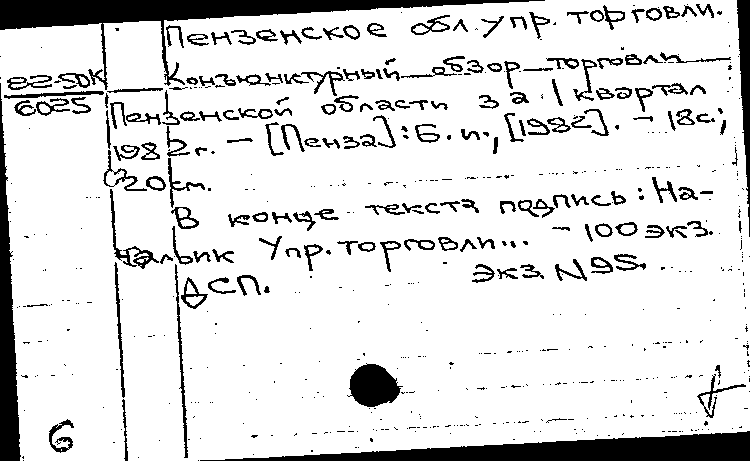 Пензенское обл. упр. торговли.
82-5ДК Конъюнктурный обзор торговли
6025 Пензенской области за I квартал
1982 г. – [Пенза]: Б.и., [1982]. – 18с.;
20 см.
В конце текста подпись: На-
чальник Упр. торговли... – 100 экз.
ДСП. Экз. N 95.
6